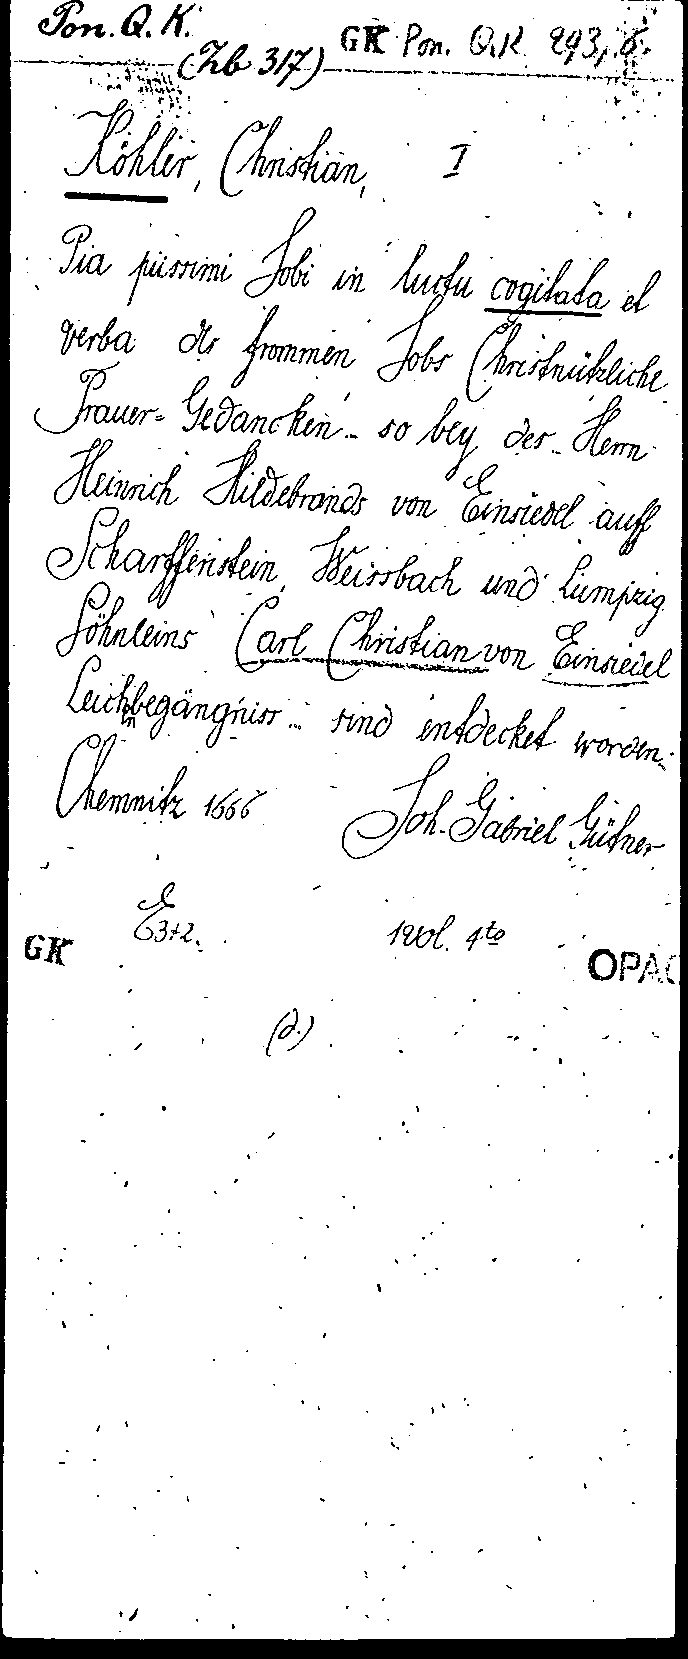 Pon. Q. K.
(Zb 317) GK Pon. Q.K. 293, 6.
Köhler, Christian, I
Pia piissimi Jobi in luctu cogitata et
verba des frommen Jobs Christnützliche
Trauer-Gedancken .. so bey des .. Herrn
Heinrich Hildebrands von Einsiedel auff
Scharffenstein, Weissbach und Lumpzig
Söhnleins Carl Christian von Einsiedel
Leichbegängniss ... sind entdecket worden.
in
Chemnitz 1666 Joh. Gabriel Gütner
1 Vol. 4to
GK OPAC
(d.)